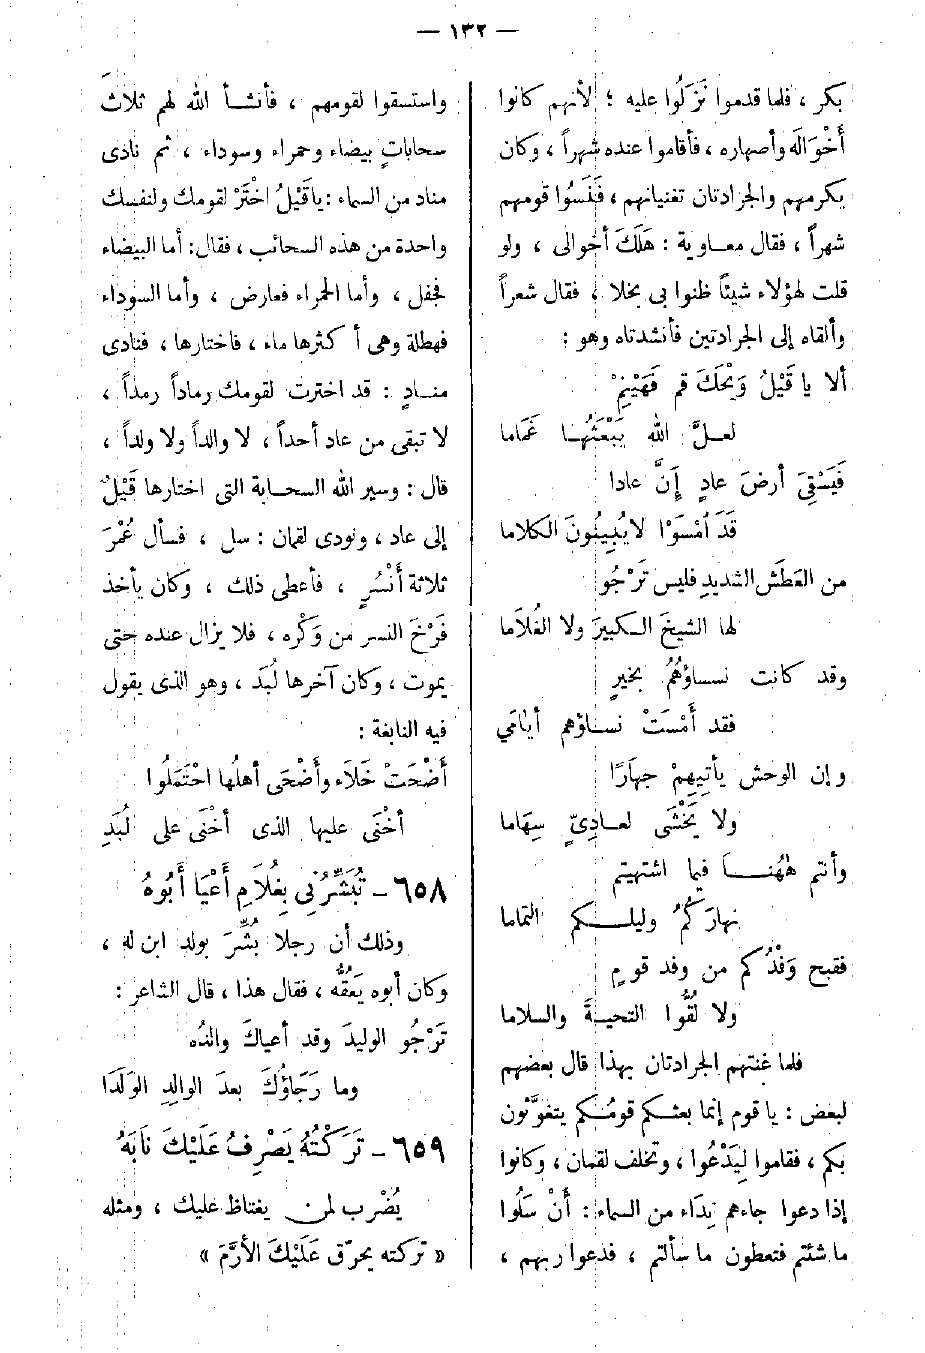 — ١٣٢ —
بكر ، فلما قدموا نَزَلُوا عليه ؛ لأنهم كانوا
أَخْوَالَه وأصهاره ، فأقاموا عنده شهراً ، وكان
يكرمهم والجرادتان تغنيانهم ، فَنَسُوا قومهم
شهراً ، فقال معاوية : هَلَكَ أخوالى ، ولو
قلت لهؤلاء شيئاً ظنوا بى بخلا ، فقال شعراً
وألقاه إلى الجرادتين فأنشدتاه وهو :
ألا يا قَيْلُ وَيْحَكَ قم فَهَيْنِمْ
لعـلَّ الله يَبْعَثُهَـا غَمَاما
فَيَسْقِىَ أرضَ عادٍ إِنَّ عادا
قَدَ أمْسَوْا لا يُبِينُونَ الكلاما
من العَطَش الشديدِ فليس تَرْجُو
لها الشيخَ الـكبيرَ ولا الغُلاَما
وقد كانت نساؤهُمُ بخيرٍ
فقد أَمْسَتْ نسـاؤهم أيَامَي
وإن الوحش يأتِيهِمْ جهارًا
ولا يَخْشَى لعـادِىٍّ سِهَاما
وأنتم هٰهُنـا فيما اشتهيتم
نهارَكُمُ وليلـكم التماما
فقبح وَفْدُكم من وفد قومٍ
ولا لُقُّوا التحيـةَ والسلاما
فلما غنتهم الجرادتان بهذا قال بعضهم
لبعض : يا قوم إنما بعثـكم قومُـكم يتغوَّثون
بكم ، فقاموا لِيَدْعُوا ، وتخلف لقمان ، وكانوا
إذا دعوا جاءهم نِدَاء من السماء : أَنْ سَلُوا
ما شئتم فتعطون ما سألتم ، فدعوا ربهم ،
واستسقوا لقومهم ، فأنشـأ الله لهم ثلاثَ
سحاباتٍ بيضاء وحمراء وسوداء ، ثم نادى
مناد من السماء : يا قَيْلُ اخْتَرْ لقومك ولنفسك
واحدة من هذه السحائب ، فقال : أما البيضاء
فجفل ، وأما الحمراء فعارض ، وأما السوداء
فهطلة وهى أكثرها ماء ، فاختارها ، فنادى
منـادٍ : قد اخترت لقومك رماداً رمداً ،
لا تبقى من عاد أحداً ، لا والداً ولا ولداً ،
قال : وسير الله السحـابة التى اختارها قَيْلٌ
إلى عاد ، ونودى لقمان : سل ، فسأل عُمْرَ
ثلاثة أَنْسُرٍ ، فأعطى ذلك ، وكان يأخذ
فَرْخَ النسر من وَكْره ، فلا يزال عنده حتى
يموت ، وكان آخرها لُبَد ، وهو الذى يقول
فيه النابغة :
أَضْحَتْ خَلَاَء وأَضْحَى أهلُها احْتَمَلُوا
أخْنَى عليها الذى أخْنَى على لُبَدِ
٦٥٨ - تُبَشِّرُنِى بِغُلاَمٍ أَعْيَا أَبُوهُ
وذلك أن رجلا بُشِّرَ بولد ابن له ،
وكان أبوه يَعُقُّه ، فقال هذا ، قال الشاعر :
تَرْجُو الوليدَ وقد أعياكَ والدُه
وما رَجَاؤُكَ بعدَ الوالدِ الوَلَدَا
٦٥٩ - تَرَكْتُهُ يَصْرِفُ عَلَيْكَ نَابَهُ
يُضْرب لمن يغتاظ عليك ، ومثله
« تركته يحرّق عَلَيْكَ الأرَّمَ »